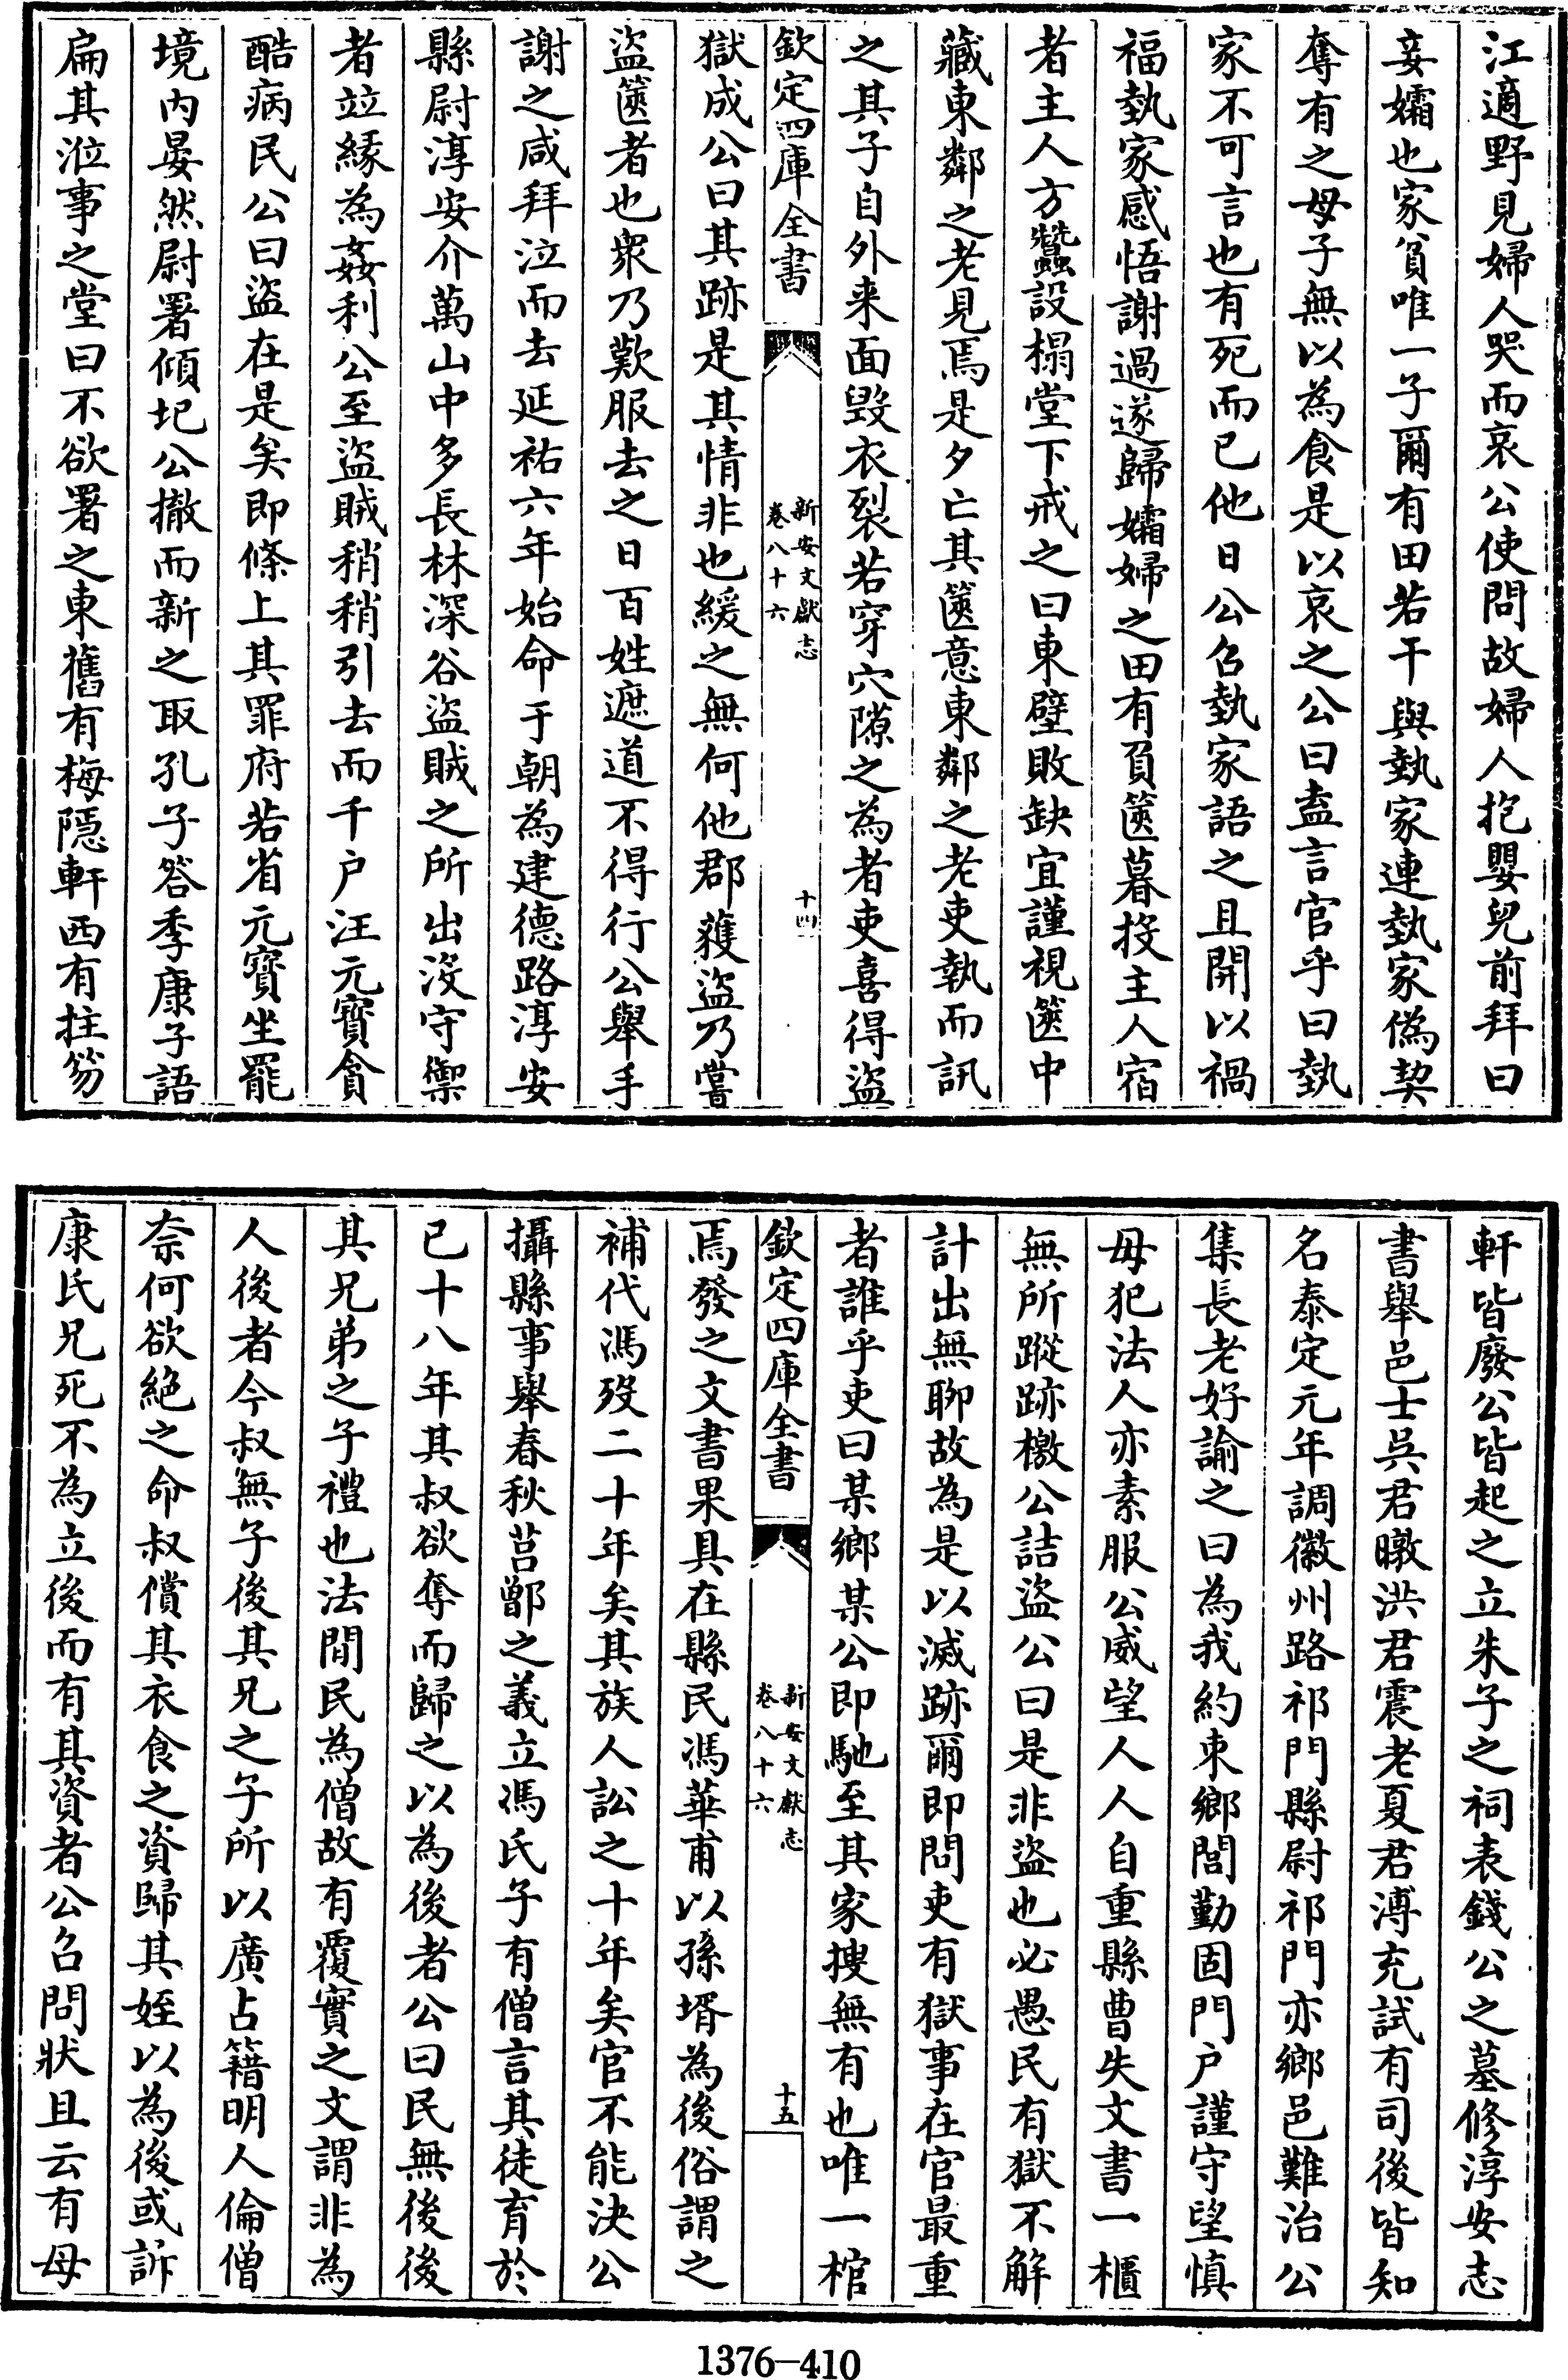 江適野見婦人哭而哀公使問故婦人抱嬰兒前拜曰
妾孀也家貧唯一子爾有田若干與埶家連埶家偽契
奪有之母子無以為食是以哀之公曰盍言官乎曰埶
家不可言也有死而已他日公召埶家語之且開以禍
福埶家感悟謝過遂歸孀婦之田有負篋暮投主人宿
者主人方蠶設榻堂下戒之曰東壁敗缺宜謹視篋中
藏東鄰之老見焉是夕亡其篋意東鄰之老吏執而訊
之其子自外来面毀衣裂若穿穴隙之為者吏喜得盜
欽定四庫全書
新安文獻志
卷八十六
十四
獄成公曰其跡是其情非也緩之無何他郡獲盜乃嘗
盜篋者也衆乃歎服去之日百姓遮道不得行公舉手
謝之咸拜泣而去延祐六年始命于朝為建德路淳安
縣尉淳安介萬山中多長林深谷盜賊之所出沒守禦
者竝緣為姦利公至盜賊稍稍引去而千户汪元寳貪
酷病民公曰盜在是矣即條上其罪府若省元寳坐罷
境内晏然尉署傾圮公撤而新之取孔子答季康子語
扁其涖事之堂曰不欲署之東舊有梅隱軒西有拄笏
軒皆廢公皆起之立朱子之祠表錢公之墓修淳安志
書舉邑士吳君暾洪君震老夏君溥充試有司後皆知
名泰定元年調徽州路祁門縣尉祁門亦鄉邑難治公
集長老好諭之曰為我約束鄉閭勤固門户謹守望慎
毋犯法人亦素服公威望人人自重縣曹失文書一櫃
無所蹤跡檄公詰盜公曰是非盜也必愚民有獄不解
計出無聊故為是以滅跡爾即問吏有獄事在官最重
者誰乎吏曰某鄉某公即馳至其家搜無有也唯一棺
欽定四庫全書
新安文獻志
卷八十六
十五
焉發之文書果具在縣民馮華甫以孫壻為後俗謂之
補代馮歿二十年矣其族人訟之十年矣官不能決公
攝縣事舉春秋莒鄫之義立馮氏子有僧言其徒育於
已十八年其叔欲奪而歸之以為後者公曰民無後後
其兄弟之子禮也法閒民為僧故有覆實之文謂非為
人後者今叔無子後其兄之子所以廣占籍明人倫僧
奈何欲絕之命叔償其衣食之資歸其姪以為後或訴
康氏兄死不為立後而有其資者公召問狀且云有母
1376-410